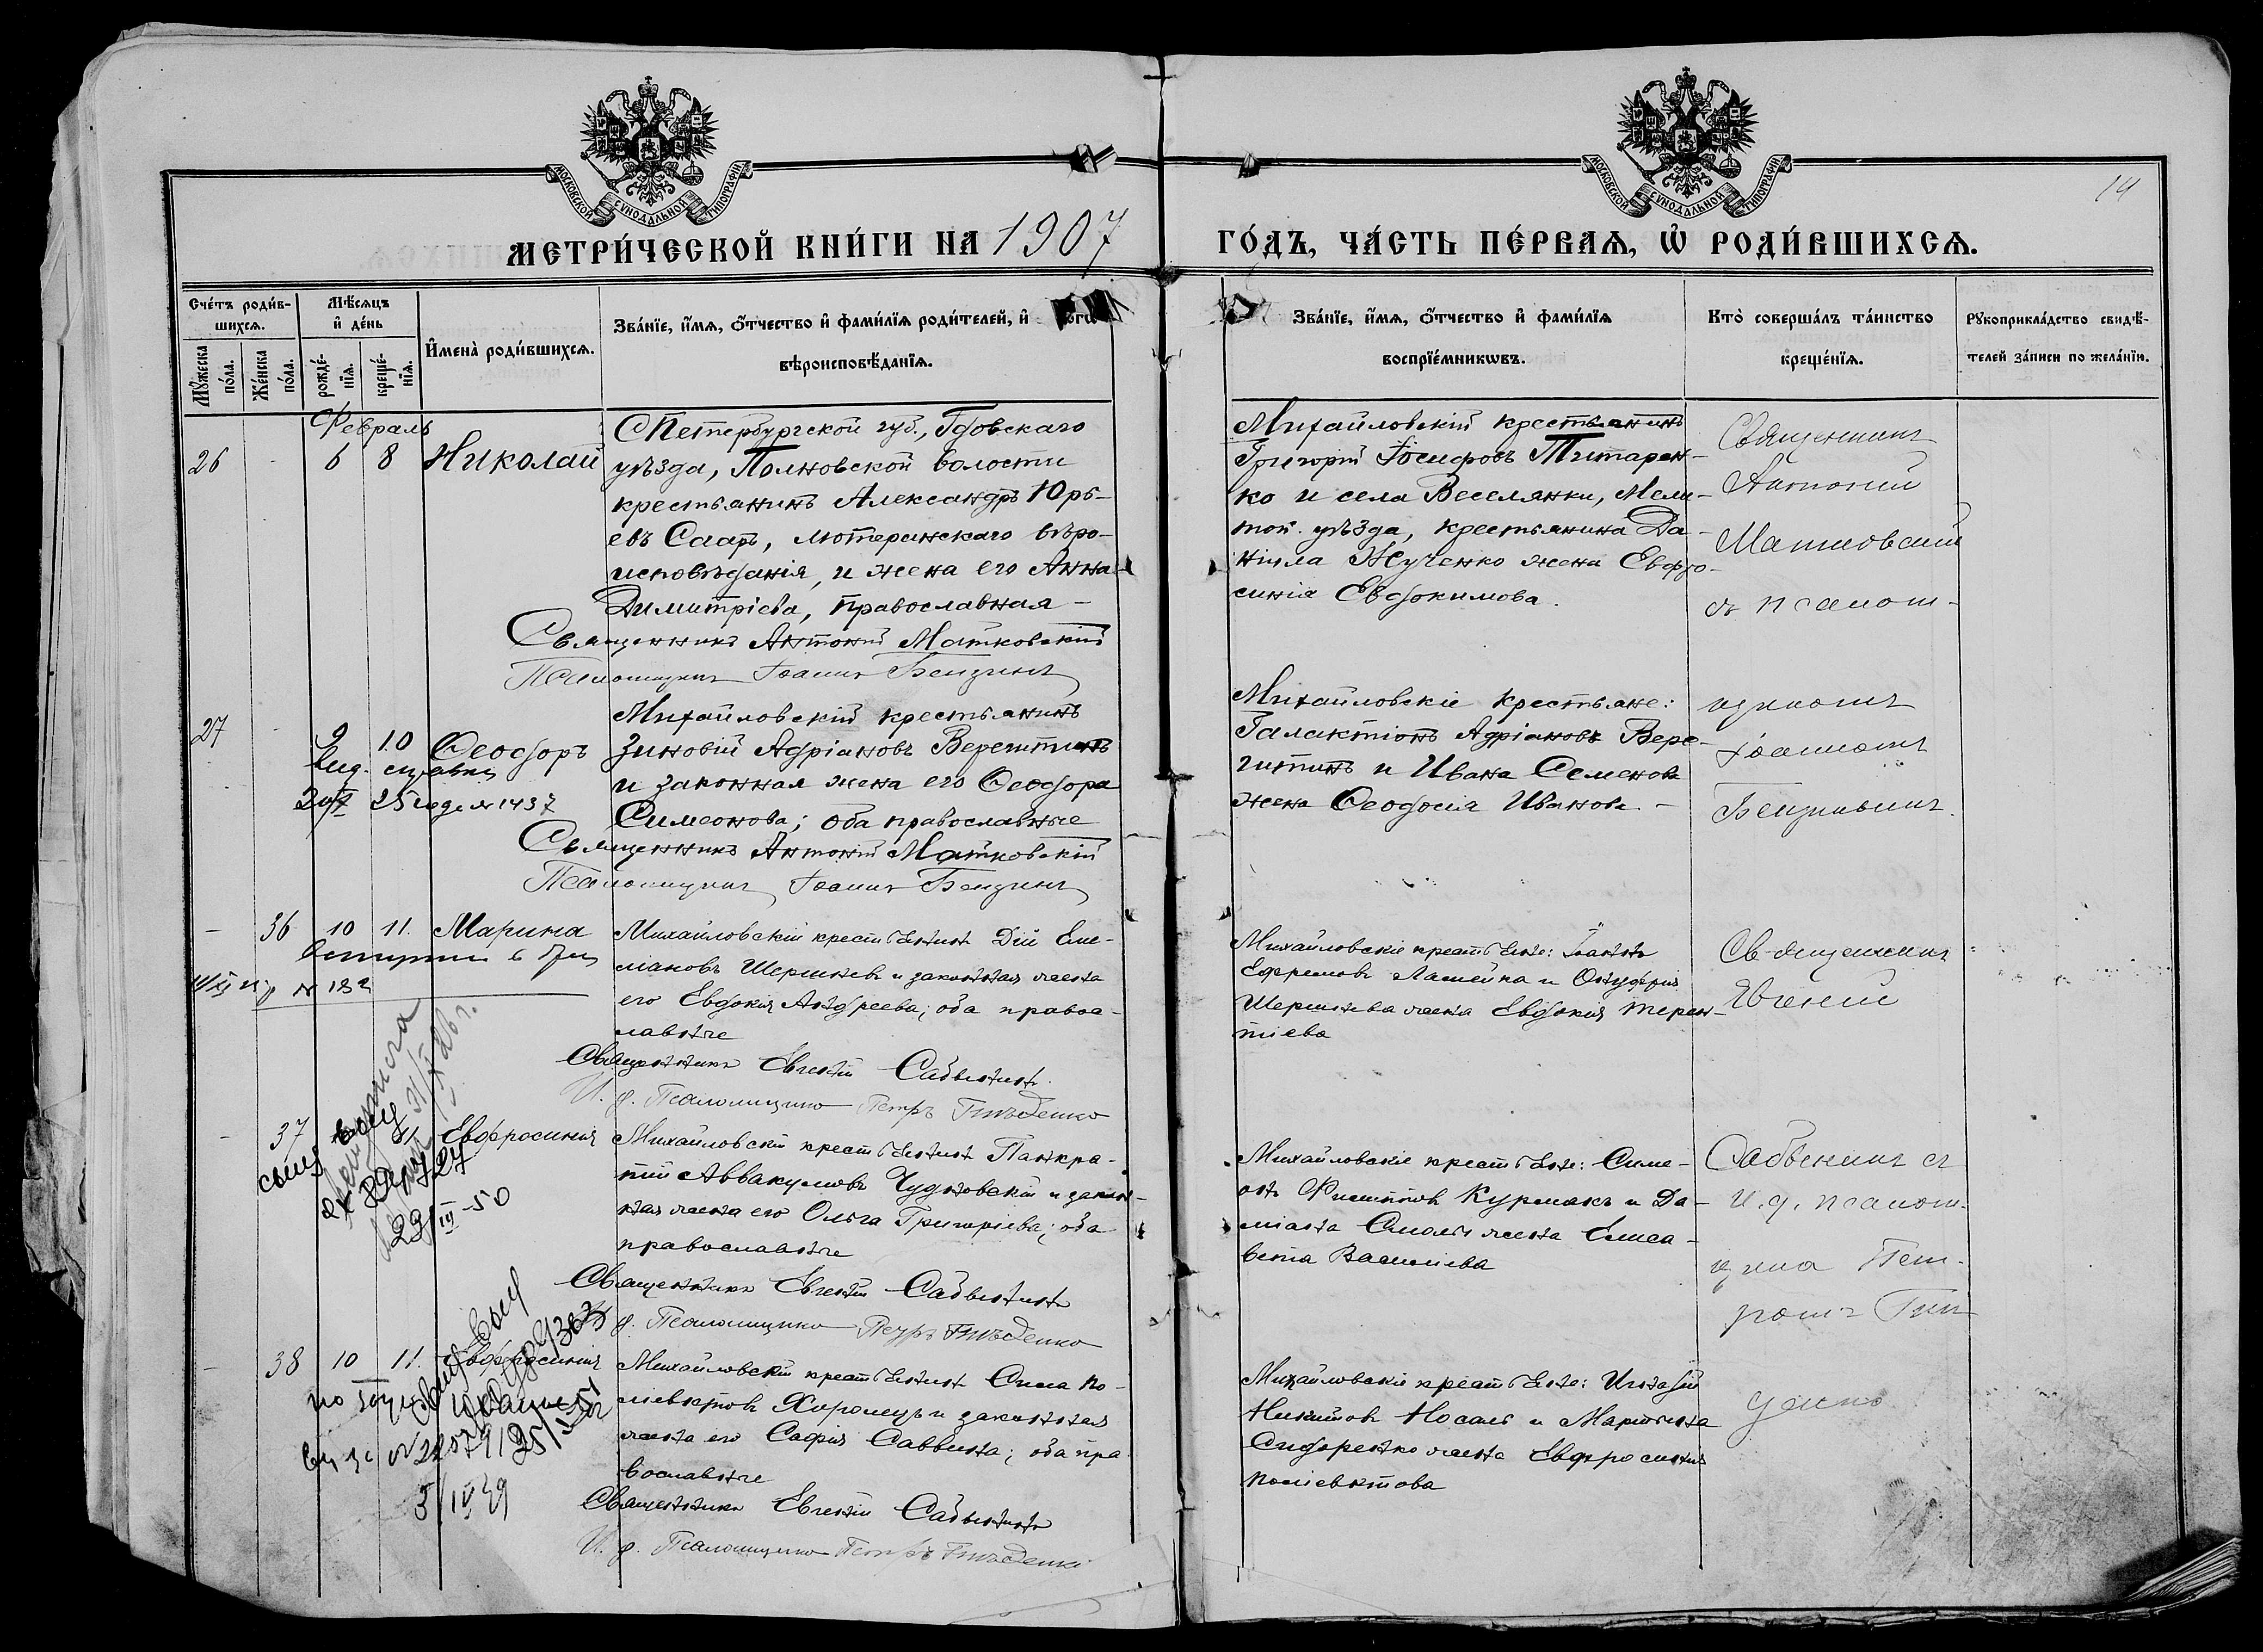 МОСКОВСКОЙ СУНОДАЛЬНОЙ ТИПОГРАФИИ
МОСКОВСКОЙ СУНОДАЛЬНОЙ ТИПОГРАФИИ
14
МЕТРИ́ЧЕСКОЙ КНИ́ГИ НА 1907
ГО́ДЪ, ЧА́СТЬ ПЕ́РВАѦ, Ѡ҆ РОДИ́ВШИХСѦ.
Сче́тъ роди́в-
шихсѧ.
Мꙋ́жеска по́ла.
Же́нска по́ла.
Мѣ́сѧцъ
и҆ де́нь
рожде́-
нїѧ.
креще́-
нїѧ.
И҆мена̀ роди́вшихсѧ.
Зва́нїе, и҆́мѧ, ѻ҆́тчество и҆ фами́лїѧ роди́телей, и҆
вѣроисповѣ́данїѧ.
Зва́нїе, и҆́мѧ, ѻ҆́тчество и҆ фами́лїѧ
воспрїе́мникѡвъ.
Кто̀ соверша́лъ та́инство
креще́нїѧ.
Рꙋкоприкла́дство свидѣ́-
телей за́писи по жела́нїю.
Февраль
26 - 6 8 Николай
СПетербургской губ., Гдовскаго
уѣзда, Полновской волости
крестьянинъ Александръ Юрь-
евъ Сааръ, лютеранскаго вѣро-
исповѣданія, и жена его Анна
Димитріева, православная -
Священникъ Антоній Матковскій
Псаломщикъ Іоаннъ Бензинъ
Михайловскій крестьянинъ
Григорій Іосифовъ Титарен-
ко и села Веселянки, Мели-
топ. уѣзда, крестьянина Да-
ніила Жученко жена Евфро-
синія Евдокимова.
Священникъ
Антоній
Матковскій
съ псалом-
27 - 9 10 Ѳеодоръ
Выд. справка
25 года № 1437
Михайловскій крестьянинъ
Зиновій Адріановъ Веретинъ
и законная жена его Ѳеодора
Симеонова; оба православные
Священникъ Антоній Матковскій
Псаломщикъ Іоаннъ Бензинъ
Михайловскіе крестьяне:
Галактіонъ Адріановъ Вере-
тинъ и Ивана Семенова
жена Ѳеодосія Иванова. -
щикомъ
Іоанномъ
Бензинымъ.
- 36 10 11. Марина
№ 182
Михайловскій крестьянинъ Дій Еме-
ліановъ Шершневъ и законная жена
его Евдокія Андреева; оба правос-
лавные
Священникъ Евгеній Саввинъ
И. д. Псаломщика Петръ Гнѣденко
Михайловскіе крестьяне: Іоаннъ
Ефремовъ Ламейка и Онуфрія
Шершнева жена Евдокія Терен-
тіева
Священникъ
Евгеній
- 37 Евфросинія
29/III-50
Михайловскій крестьянинъ Панкра-
тій Аввакумовъ Чудновскій и закон-
ная жена его Ольга Григоріева; оба
православные
Священникъ Евгеній Саввинъ
д. Псаломщика Петръ Гнѣденко
Михайловскіе крестьяне: Симе-
онъ Филипповъ Курмакъ и Да-
міана жена Елиса-
вета Василіева
съ
и. д. псалом-
щика Пет-
ромъ Гнѣ-
- 38 10 11. Евфросинія
Михайловскій крестьянинъ Сила По-
ліевктовъ Хоролецъ и законная
жена его Софія Саввина; оба пра-
вославные
Священникъ Евгеній Саввинъ
И. д. Псаломщика Петръ Гнѣденко
Михайловскіе крестьяне: Игнатій
Никитовъ Носаль и Мартина
Сидоренко жена Евфросинія
Поліевктова
денко